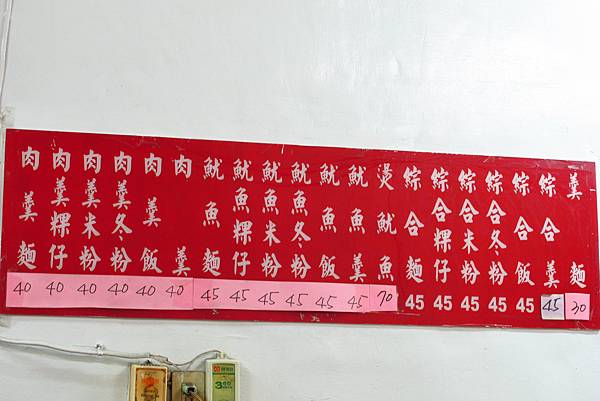 肉羹麵 40
肉羹粿仔 40
肉羹米粉 40
肉羹冬粉 40
肉羹飯 40
肉羹 40
魷魚麵 45
魷魚粿仔 45
魷魚米粉 45
魷魚冬粉 45
魷魚飯 45
魷魚羹 45
燙魷魚 70
綜合麵 45
綜合粿仔 45
綜合米粉 45
綜合冬粉 45
綜合飯 45
綜合羹 45
羹麵 30